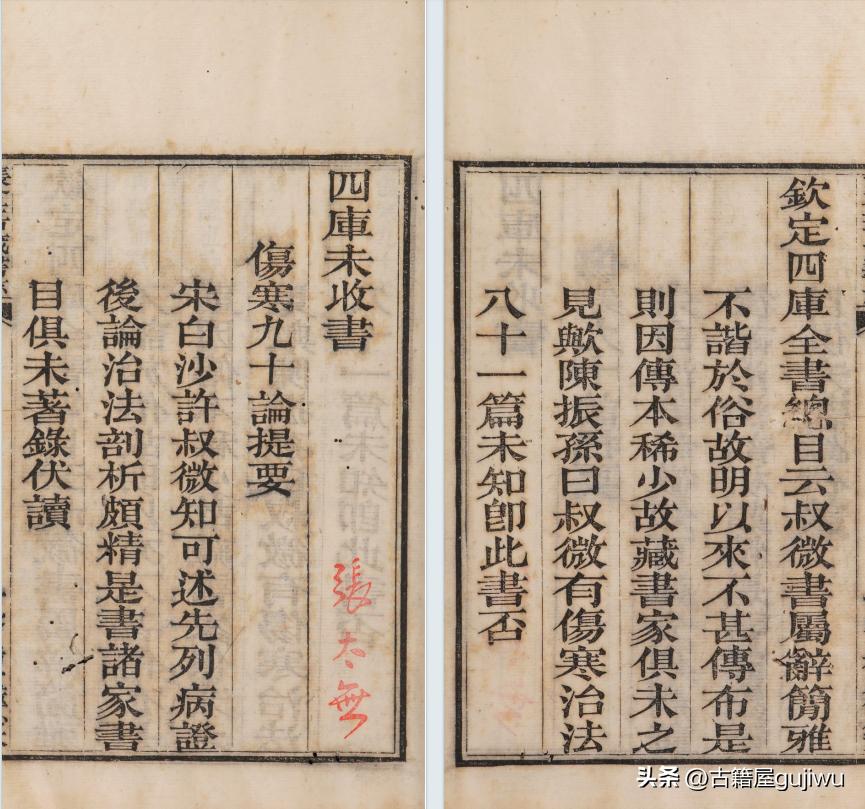 四庫未收書
張太無
傷寒九十論提要
宋白沙許叔微知可述先列病證
後論治法剖析頗精是書諸家書
目俱未著錄伏讀
欽定四庫全書總目云叔微書屬辭簡雅
不諧於俗故明以來不甚傳布是
則因傳本稀少故藏書家俱未之
見歟陳振孫曰叔微有傷寒治法
八十一篇未知卽此書否
头条 @古籍屋gujiwu